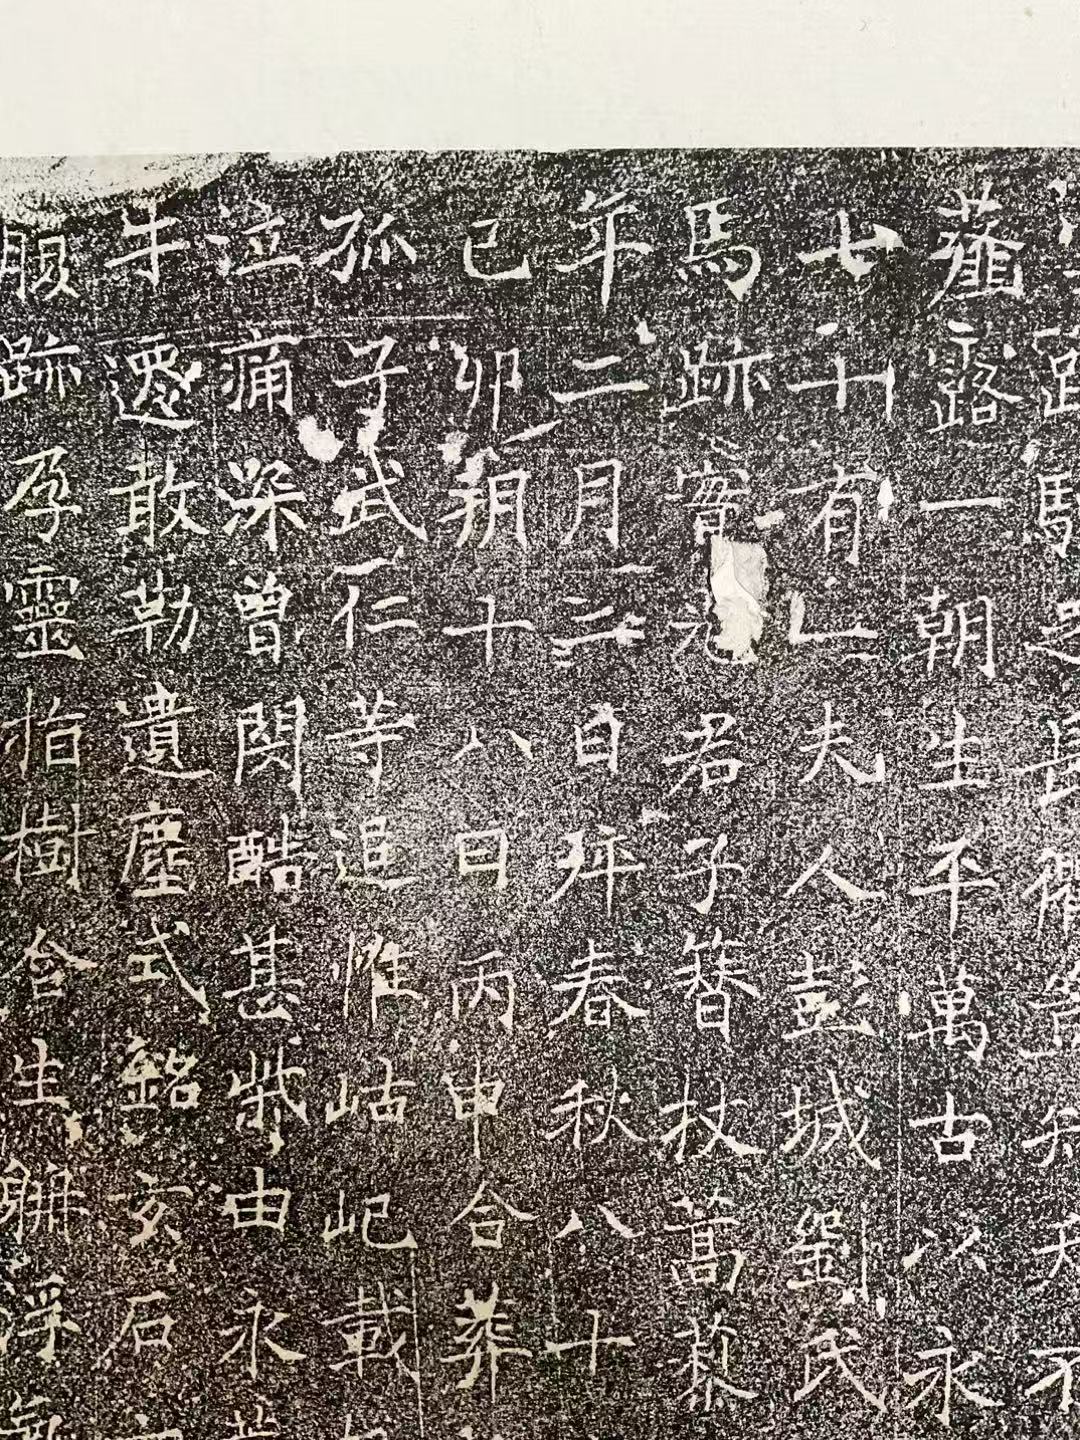 宮駟之長衛
薤露一朝生平萬古以永
七十有七夫人彭城劉氏
馬跡實君子簪杖蒿蒸
年二月二日降春秋八十
己卯朔十八日丙申合葬
孤子武仁等追惟岵屺載
泣痛深曾閔酷甚柴由永
牛還敢勒遺塵式銘玄石
服跡孕靈指樹含生聊浮